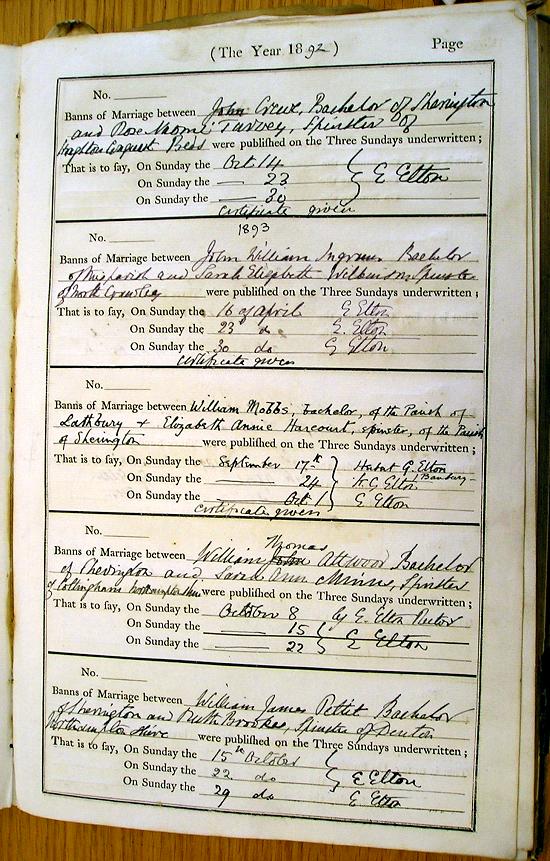 (The Year 1892) Page
No.
Banns of Marriage between John Crewe, Bachelor of Sherington
and Rose Naomi Turvey, Spinster of
Beds were published on the Three Sundays underwritten;
That is to say, On Sunday the Oct 14
On Sunday the — 23 E Elton
On Sunday the — 30
Certificate given
1893
No.
Banns of Marriage between John William Ingram Bachelor
of this parish and Sarah Elizabeth Wilkinson, Spinster
of North Crawley were published on the Three Sundays underwritten;
That is to say, On Sunday the 16 of April E Elton
On Sunday the 23 do E. Elton
On Sunday the 30 do E Elton
Certificate given
No.
Banns of Marriage between William Mobbs, bachelor, of the Parish of
Lathbury & Elizabeth Annie Harcourt, spinster, of the Parish
of Sherington were published on the Three Sundays underwritten;
That is to say, On Sunday the September 17th G. Elton
On Sunday the — 24 Elton
On Sunday the — Oct. 1 E Elton
Certificate given
No.
Thomas
Banns of Marriage between William John Attwood Bachelor
of Sherington and Sarah Ann Minns, Spinster
of Cottingham Northamptonshire were published on the Three Sundays underwritten;
That is to say, On Sunday the October 8 by E. Elton Rector
On Sunday the — 15
On Sunday the — 22 E Elton
No.
Banns of Marriage between William James Pettit Bachelor
of Sherington and Ruth Brookes, Spinster of Denton
Northamptonshire were published on the Three Sundays underwritten;
That is to say, On Sunday the 15th October
On Sunday the 22 do E Elton
On Sunday the 29 do E Elton